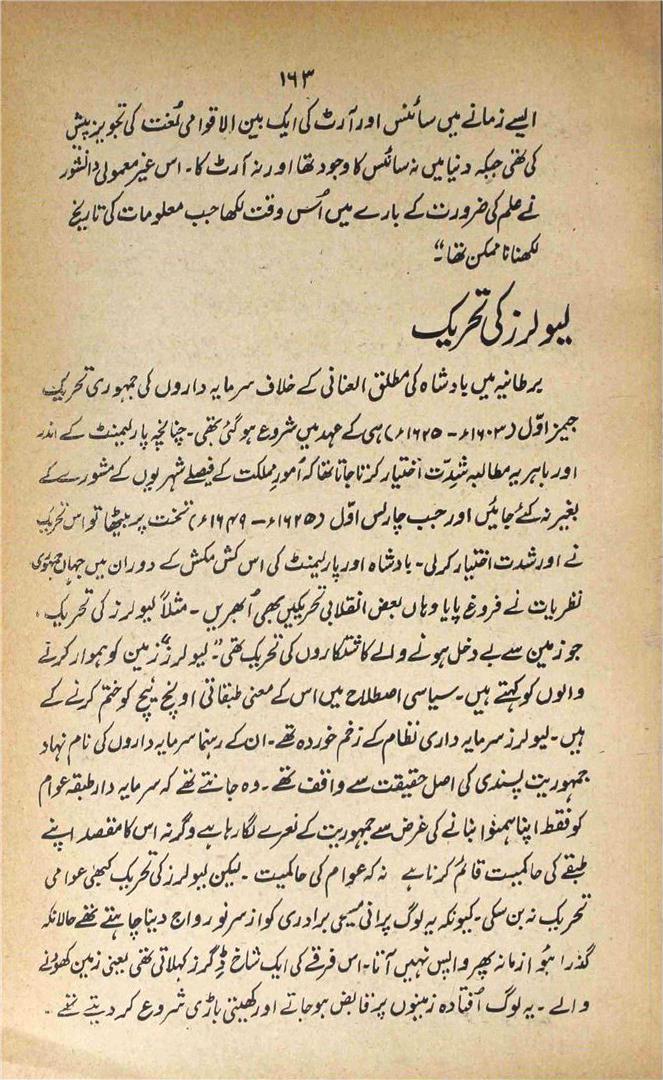 ۱۶۳
ایسے زمانے میں سائنس اور آرٹ کی ایک بین الاقوامی لُغت کی تجویز پیش
کی تھی جبکہ دنیا میں نہ سائنس کا وجود تھا اور نہ آرٹ کا۔ اس غیر معمولی دانشور
نے علم کی ضرورت کے بارے میں اُس وقت لکھا جب معلومات کی تاریخ
لکھنا ناممکن تھا“
لیولرز کی تحریک
برطانیہ میں بادشاہ کی مطلق العنانی کے خلاف سرمایہ داروں کی جمہوری تحریک
جیمز اوّل (۱۶۰۳ء - ۱۶۲۵ء) ہی کے عہد میں شروع ہو گئی تھی۔ چنانچہ پارلیمنٹ کے اندر
اور باہر یہ مطالبہ شدّت اختیار کرتا جاتا تھا کہ اُمورِ مملکت کے فیصلے شہریوں کے مشورے کے
بغیر نہ کئے جائیں اور جب چارلس اوّل (۱۶۲۵ء - ۱۶۴۹ء) تخت پر بیٹھا تو اس تحریک
نے اور شدت اختیار کر لی۔ بادشاہ اور پارلیمنٹ کی اس کش مکش کے دوران میں جہاں جمہوری
نظریات نے فروغ پایا وہاں بعض انقلابی تحریکیں بھی اُبھریں۔ مثلاً لیولرز کی تحریک،
جو زمین سے بے دخل ہونے والے کاشتکاروں کی تحریک تھی۔ ”لیولرز“ زمین کو ہموار کرنے
والوں کو کہتے ہیں۔ سیاسی اصطلاح میں اس کے معنی طبقاتی اونچ نیچ کو ختم کرنے کے
ہیں۔ لیولرز سرمایہ داری نظام کے زخم خوردہ تھے۔ ان کے رہنما سرمایہ داروں کی نام نہاد
جمہوریت پسندی کی اصل حقیقت سے واقف تھے۔ وہ جانتے تھے کہ سرمایہ دار طبقہ عوام
کو فقط اپنا ہمنوا بنانے کی غرض سے جمہوریت کے نعرے لگا رہا ہے وگرنہ اس کا مقصد اپنے
طبقے کی حاکمیت قائم کرنا ہے نہ کہ عوام کی حاکمیت۔ لیکن لیولرز کی تحریک کبھی عوامی
تحریک نہ بن سکی۔ کیونکہ یہ لوگ پرانی مسیحی برادری کو از سرِ نو رواج دینا چاہتے تھے حالانکہ
گذرا ہوا زمانہ پھر واپس نہیں آتا۔ اس فرقے کی ایک شاخ ڈِگرز کہلاتی تھی یعنی زمین کھودنے
والے۔ یہ لوگ اُفتادہ زمینوں پر قابض ہو جاتے اور کھیتی باڑی شروع کر دیتے تھے۔